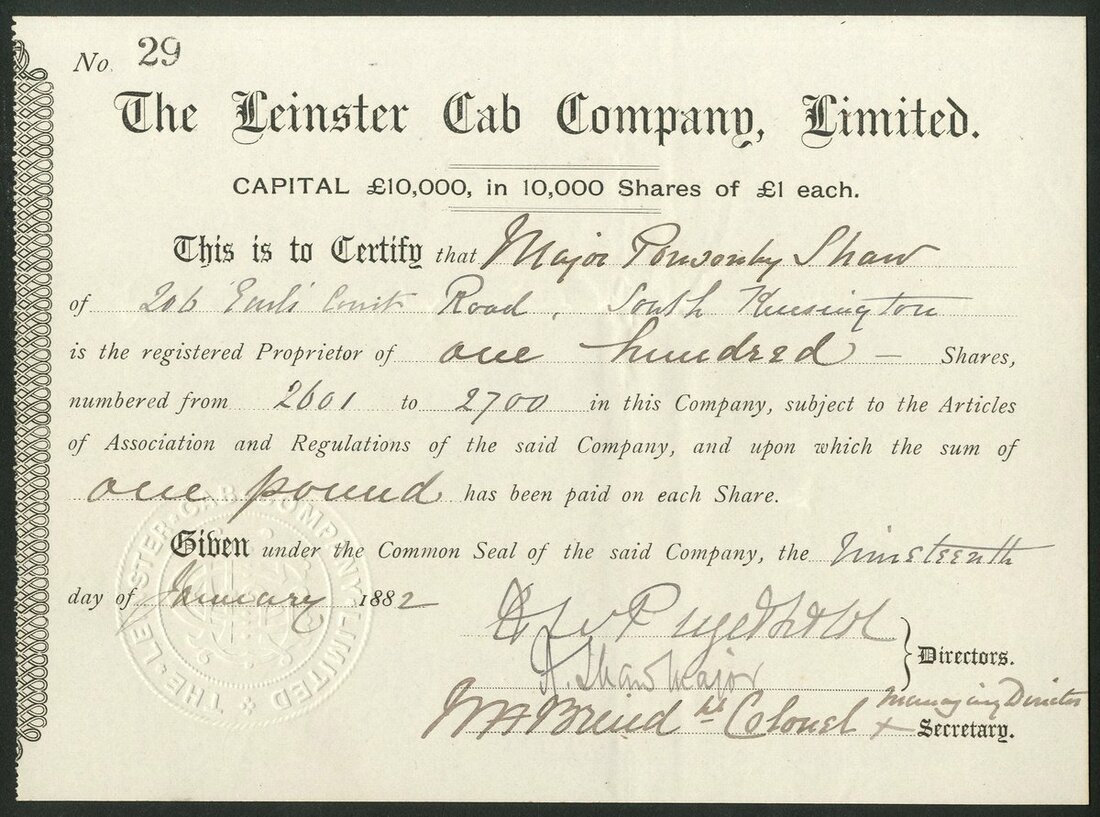 No. 29
The Leinster Cab Company, Limited.
CAPITAL £10,000, in 10,000 Shares of £1 each.
This is to Certify that Major Ponsonby Shaw
of 206 Earls Court Road, South Kensington
is the registered Proprietor of one hundred — Shares,
numbered from 2601 to 2700 in this Company, subject to the Articles
of Association and Regulations of the said Company, and upon which the sum of
one pound has been paid on each Share.
Given under the Common Seal of the said Company, the Nineteenth
day of January 1882
Directors.
Shaw Major
Colonel Managing Director
+ Secretary.
THE LEINSTER CAB COMPANY LIMITED